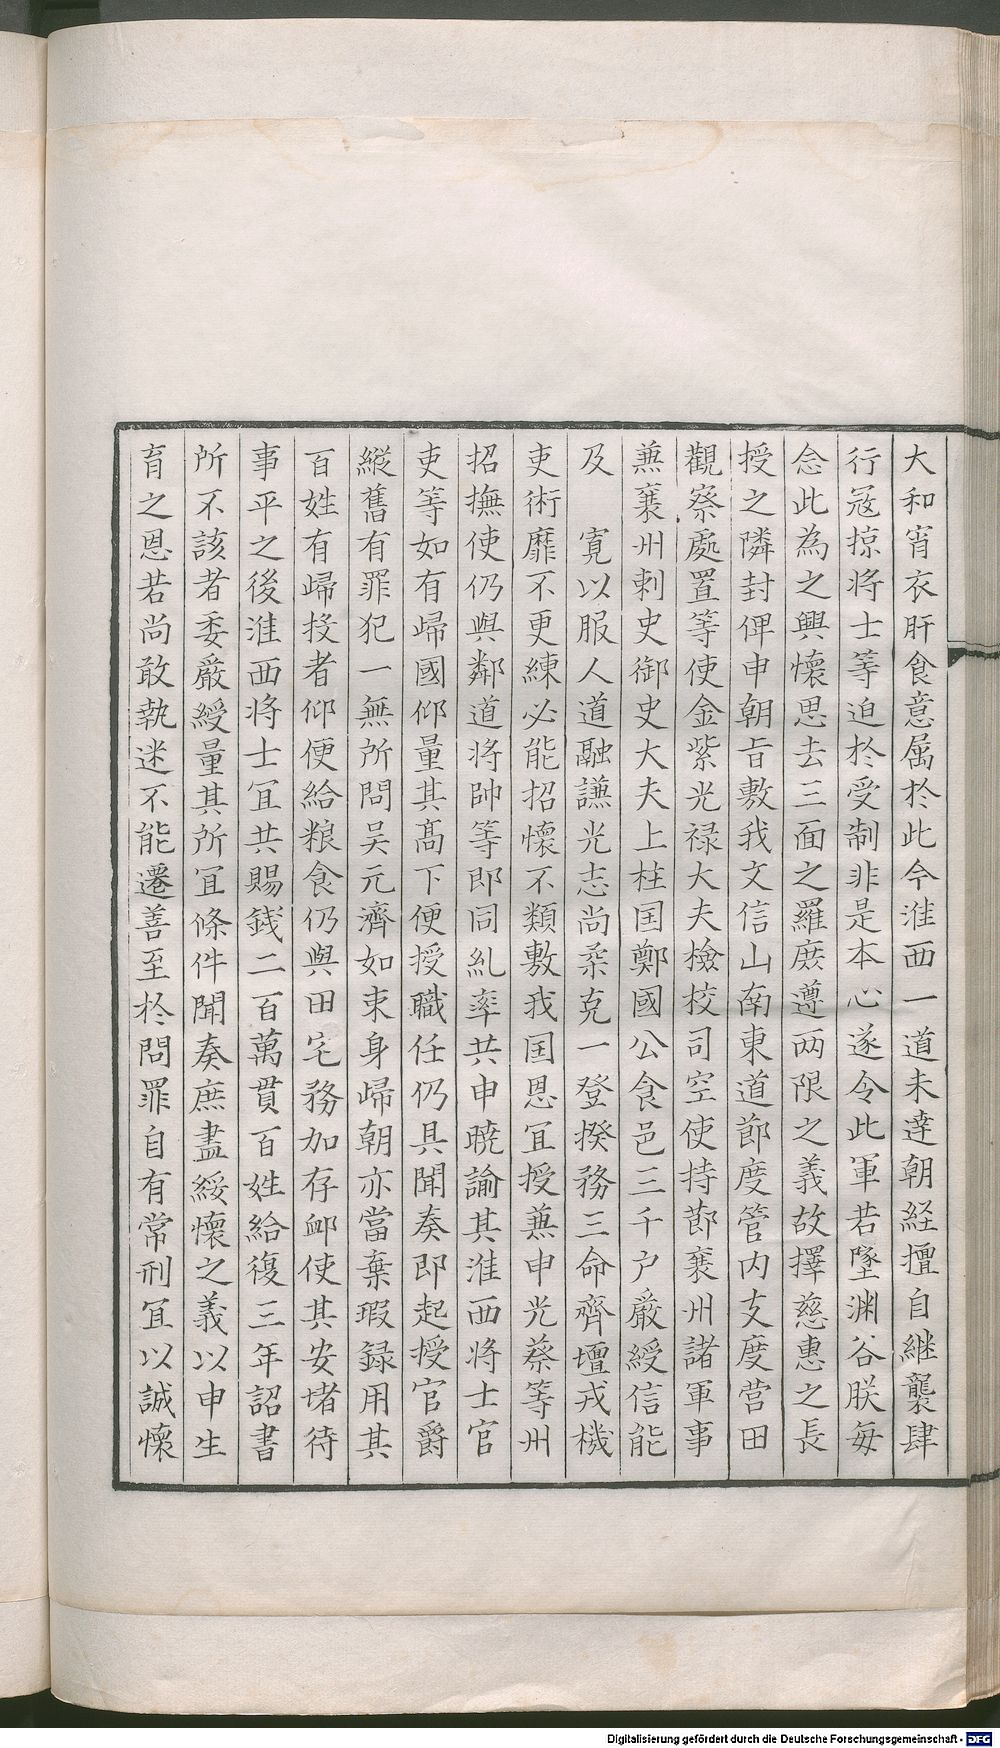 大和宵衣肝食意属於此今淮西一道未達朝経擅自継襲肆
行冦掠将士等迫於受制非是本心遂令此軍若墜渊谷朕毎
念此為之興懐思去三面之羅庶遵两限之義故擇慈惠之長
授之隣封俾申朝旨敷我文信山南東道節度管内支度営田
觀察處置等使金紫光禄大夫撿校司空使持莭襄州諸軍事
兼襄州刺史御史大夫上柱国鄭國公食邑三千户嚴綬信能
及 寛以服人道融謙光志尚柔克一登揆務三命齊壇戎機
吏術靡不更練必能招懐不類敷我国恩冝授兼申光蔡等州
招撫使仍與鄰道将帥等即同糺率共申暁諭其淮西将士官
吏等如有歸國仰量其髙下便授職任仍具聞奏即起授官爵
縦舊有罪犯一無所問吴元濟如束身歸朝亦當棄瑕録用其
百姓有歸投者仰便給粮食仍與田宅務加存衂使其安堵待
事平之後淮西将士冝共賜錢二百萬貫百姓給復三年詔書
所不該者委嚴綬量其所冝條件聞奏庶盡綏懐之義以申生
育之恩若尚敢執迷不能遷善至於問罪自有常刑冝以誠懐
Digitalisierung gefördert durch die Deutsche Forschungsgemeinschaft - DFG